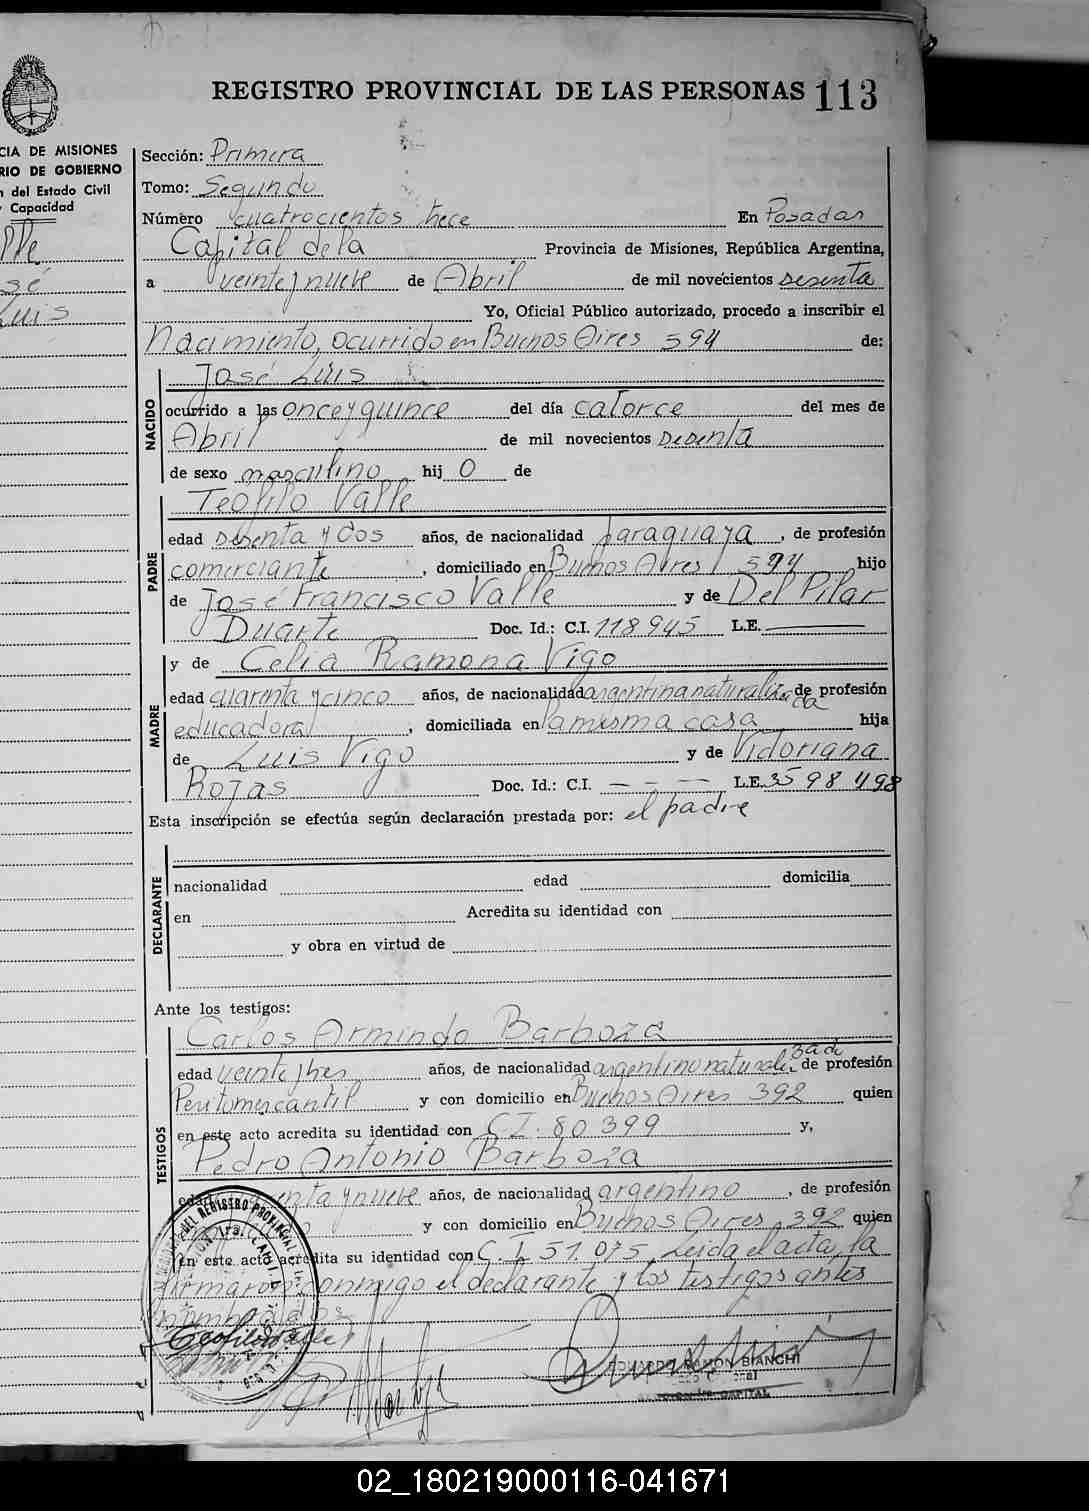 REGISTRO PROVINCIAL DE LAS PERSONAS 113
CIA DE MISIONES
RIO DE GOBIERNO
n del Estado Civil
y Capacidad
lle
sé
Luis
Sección: Primera
Tomo: Segundo
Número cuatrocientos trece En Posadas
Capital de la Provincia de Misiones, República Argentina,
a veinte y nueve de Abril de mil novecientos sesenta
Yo, Oficial Público autorizado, procedo a inscribir el
Nacimiento, ocurrido en Buenos Aires 594 de:
NACIDO
José Luis
ocurrido a las once y quince del día catorce del mes de
Abril de mil novecientos sesenta
de sexo masculino hij o de
PADRE
Teofilo Valle
edad sesenta y dos años, de nacionalidad paraguaya, de profesión
comerciante, domiciliado en Buenos Aires 594 hijo
de José Francisco Valle y de Del Pilar
Duarte Doc. Id.: C.I. 118945 L.E.
MADRE
y de Celia Ramona Vigo
edad cuarenta y cinco años, de nacionalidad argentina naturalizada de profesión
educadora, domiciliada en la misma casa hija
de Luis Vigo y de Victoriana
Rojas Doc. Id.: C.I. — — — L.E. 3598498
Esta inscripción se efectúa según declaración prestada por: el padre
DECLARANTE
nacionalidad edad domicilia
en Acredita su identidad con
y obra en virtud de
Ante los testigos:
TESTIGOS
Carlos Armindo Barboza
edad veinte y tres años, de nacionalidad argentino naturalizado de profesión
Perito mercantil y con domicilio en Buenos Aires 392 quien
en este acto acredita su identidad con C I. 80399 y,
Pedro Antonio Barboza
edad y nueve años, de nacionalidad argentino, de profesión
y con domicilio en Buenos Aires 392 quien
en este acto acredita su identidad con C. I. 51.075. Leida el acta, la
firmaron conmigo el declarante y los testigos antes
nombrados
Teofilo Valle
EDUARDO RAMON BIANCHI
CAPITAL
02_180219000116-041671